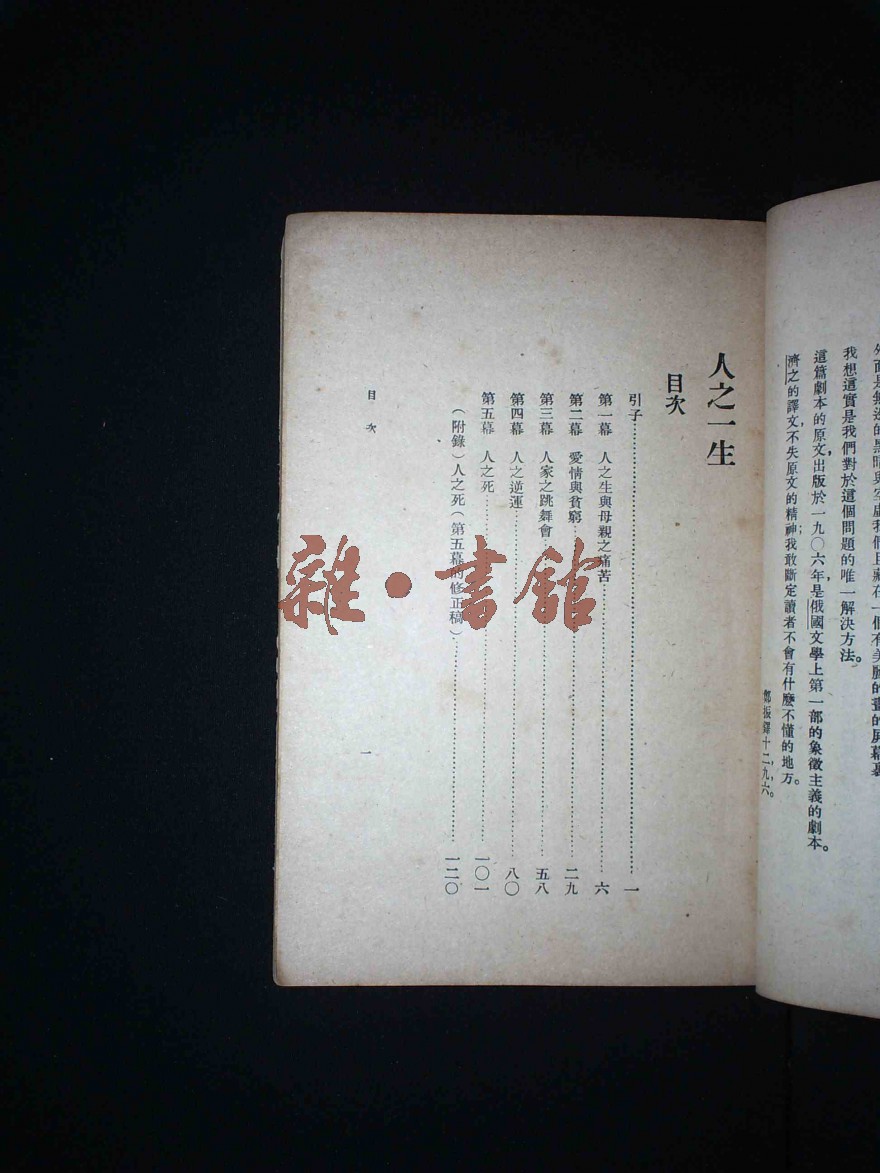 外面是無邊的黑暗與空虛我們且藏在一個有美麗的畫的屏幕裏
我想這實是我們對於這個問題的唯一解決方法。
這篇劇本的原文,出版於一九〇六年,是俄國文學上第一部的象徵主義的劇本。
濟之的譯文,不失原文的精神;我敢斷定讀者不會有什麼不懂的地方。
鄭振鐸十二,九,六。
人之一生
目次
引子……一
第一幕 人之生與母親之痛苦……六
第二幕 愛情與貧窮……二九
第三幕 人家之跳舞會……五八
第四幕 人之逆運……八〇
第五幕 人之死……一〇一
(附錄)人之死(第五幕的修正稿)……一二〇
目次
一
雜·書館